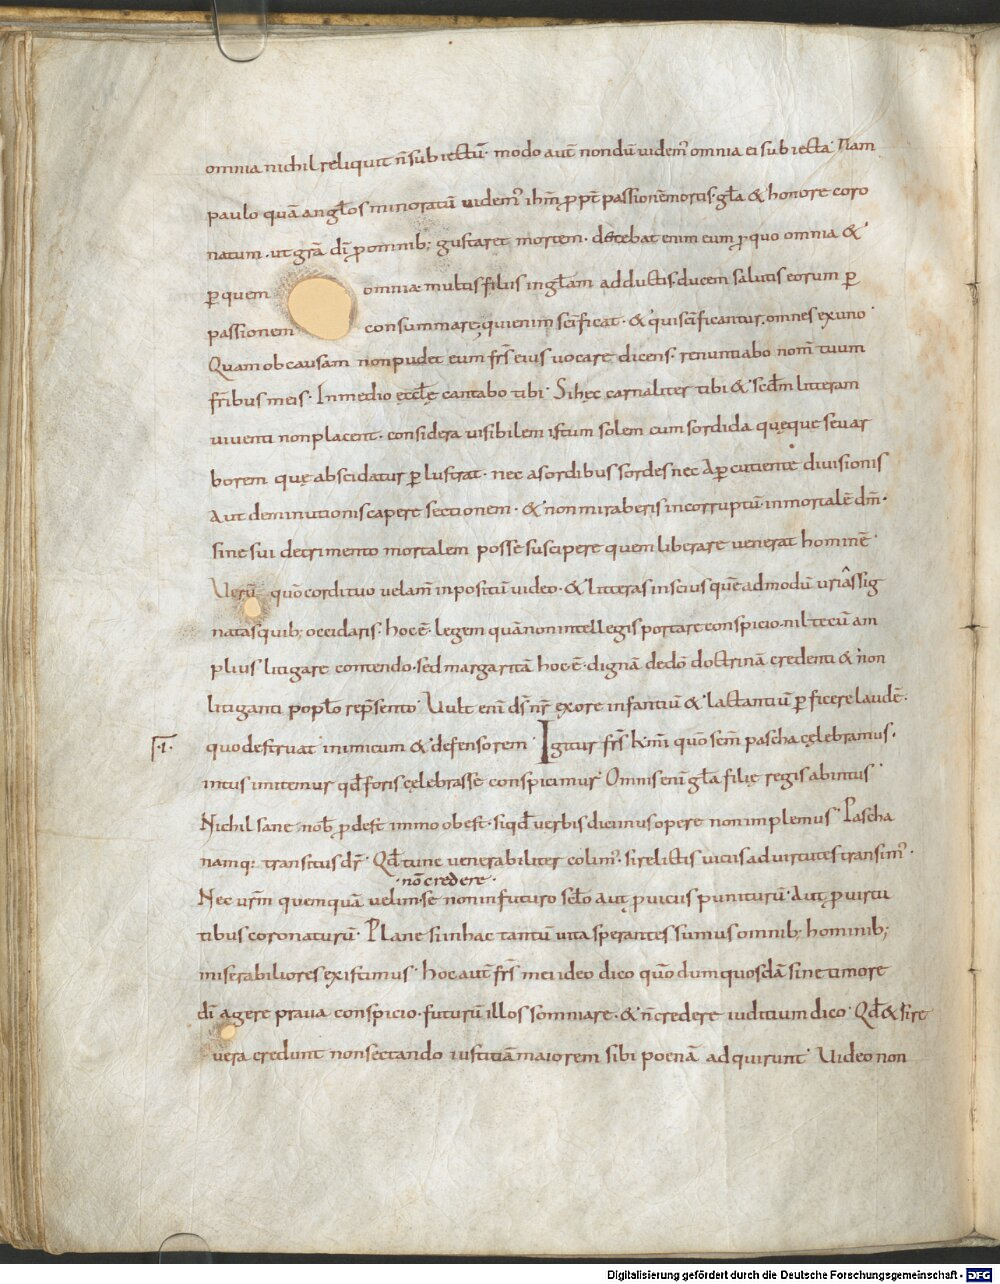 omnia nichil reliquit n̄ subiectū· modo aut̄ nondū uidem᷒ omnia ei subiecta· Nam
paulo quā angƚos minoratū uidem᷒ ihm̄ ꝓpt̄ passionē mortis· gƚa & honore coro
natum· ut gr̄a dī ꝓ omnib; gustaret mortem· decebat enim eum ꝓ quo omnia &
ꝑ quem omnia· multis filiis in gƚam adductis· ducem salutis eorum ꝑ
passionem consummare; qui enim scīficat· & qui scīficantur, omnes ex uno·
Quam ob causam non pudet eum fr̄s eius uocare dicens· renuntiabo nom̄ tuum
fr̄ibus meis· In medio ęccƚę cantabo tibi· Si hęc carnaliter tibi & scd̄m litteram
uiuenti non placent· considera uisibilem istum solem cum sordida quęque seu ar
borem quę abscidatur ꝑlustrat· nec a sordibus sordes nec a ꝑcutiente diuisionis
aut deminutionis capere sectionem· & non miraberis incorruptū inmortalē dm̄·
sine sui detrimento mortalem posse suscipere quem liberare uenerat hominē·
Uerū quō cordi tuo uelam̄ inpositū uideo· & litteras inscius quē admodū uriâs sig
natas quib; occidaris· hoc ē· legem quā non intellegis portare conspicio· nil tecū am
plius litigare contendo· sed margaritā hoc ē· dignā de dō doctrinā credenti & non
litiganti popƚo rep̄sento· Uult eni ds̄ nr̄ ex ore infantiū & lactantiū ꝑficere laudē·
·I· quo destruat inimicum & defensorem Igitur fr̄s km̄i quō sem̄ pascha cęlebramus·
intus imitemur qd̄ foris cęlebrasse conspicimur· Omnis eni gƚa filię regis ab intus·
Nichil sane nob̄ ꝓdest immo obest· si qd̄ uerbis dicimus opere non implemus· Pascha
namq; transitus dr̄· Qd̄ tunc uenerabiliter colim᷒· si relictis uiciis ad uirtutes transim᷒·
·nō credere·
Nec urm̄ quemquā uelim se non in futuro scƚo aut ꝓ uiciis puniturū· aut ꝓ uirtu
tibus coronaturū· Plane si in hac tantū uita sperantes sumus omnib; hominib;
miserabiliores existimus· hoc aut̄ fr̄s mei ideo dico quō dum quosdā sine timore
dī agere praua conspicio· futurū illos somniare· & n̄ credere iuditium dico· Qd̄ & si re
uera credunt non sectando iustitiā maiorem sibi poenā adquirunt· Uideo non
Digitalisierung gefördert durch die Deutsche Forschungsgemeinschaft - DFG